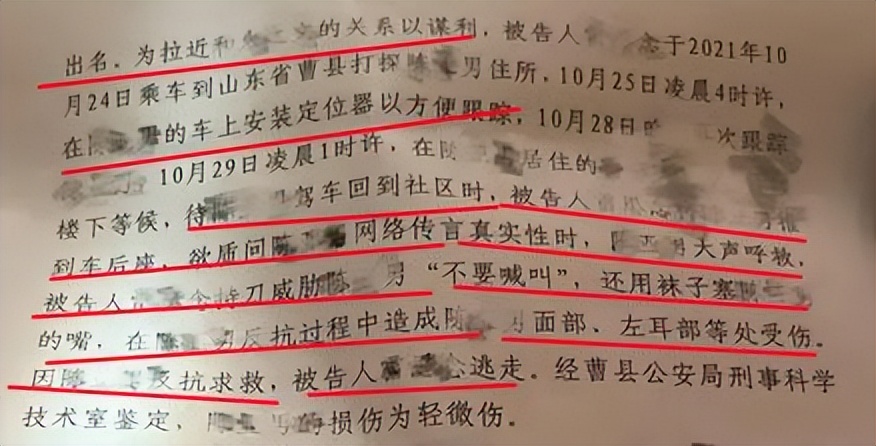 出名。为拉近和 的关系以谋利，被告人 于2021年10
月24日乘车到山东省曹县打探 男住所，10月25日凌晨4时许，
在 的车上安装定位器以方便跟踪，10月28日 次跟踪
10月29日凌晨1时许，在 居住的
楼下等候，待 驾车回到社区时，被告人
到车后座，欲质问陈 网络传言真实性时， 男大声呼救，
被告人 持刀威胁陈 男“不要喊叫”，还用袜子塞
的嘴，在 男反抗过程中造成陈 男面部、左耳部等处受伤。
因陈 反抗求救，被告人 逃走。经曹县公安局刑事科学
技术室鉴定， 的损伤为轻微伤。